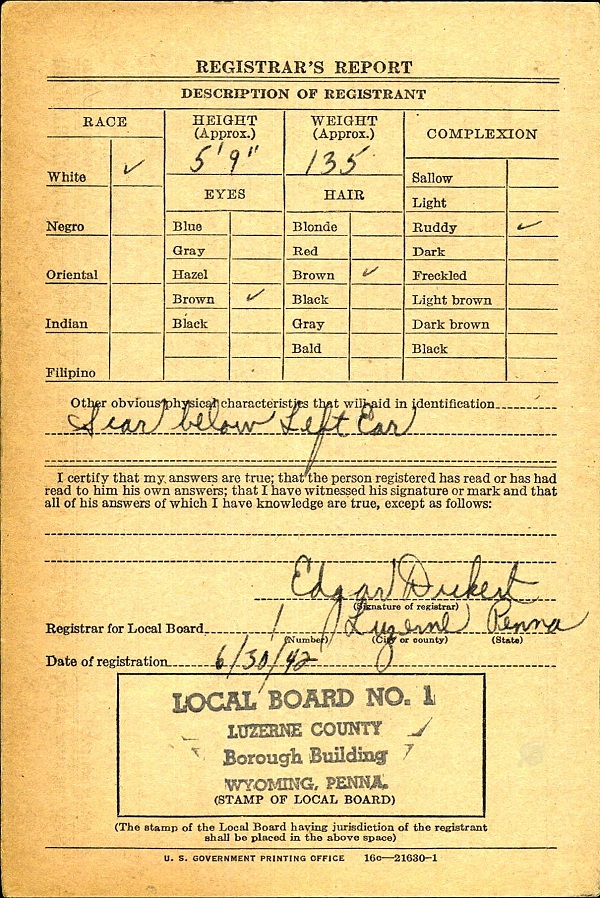 REGISTRAR'S REPORT
DESCRIPTION OF REGISTRANT
RACE
HEIGHT
(Approx.)
WEIGHT
(Approx.)
COMPLEXION
5' 9"
135
White ✓
Sallow
EYES
HAIR
Light
Negro
Blue
Blonde
Ruddy ✓
Gray
Red
Dark
Oriental
Hazel
Brown ✓
Freckled
Brown ✓
Black
Light brown
Indian
Black
Gray
Dark brown
Bald
Black
Filipino
Other obvious physical characteristics that will aid in identification
Scar below Left Ear
I certify that my answers are true; that the person registered has read or has had
read to him his own answers; that I have witnessed his signature or mark and that
all of his answers of which I have knowledge are true, except as follows:
Edgar
(Signature of registrar)
Registrar for Local Board 1 Luzerne Penna
(Number) (City or county) (State)
Date of registration 6/30/42
LOCAL BOARD NO. 1
LUZERNE COUNTY
Borough Building
WYOMING, PENNA.
(STAMP OF LOCAL BOARD)
(The stamp of the Local Board having jurisdiction of the registrant
shall be placed in the above space)
U. S. GOVERNMENT PRINTING OFFICE 16c—21630-1